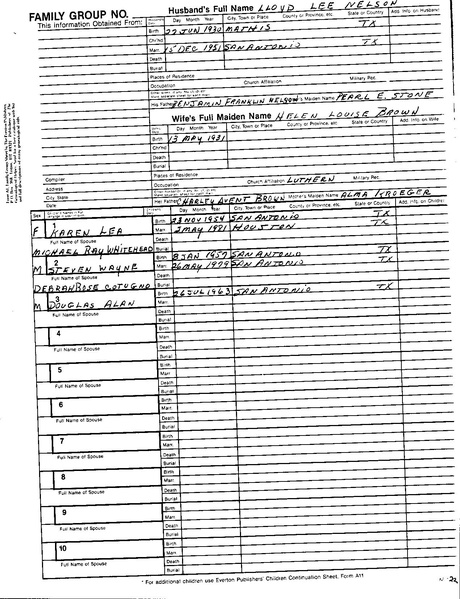 FAMILY GROUP NO.
This Information Obtained From:
Husband's Full Name LLOYD LEE NELSON
Day Month Year City, Town or Place County or Province, etc. State or Country Add. Info. on Husband
Birth 22 JUN 1930 MATHIS TX
Chr'nd
Marr. 15 DEC 1951 SAN ANTONIO TX
Death
Burial
Places of Residence
Occupation Church Affiliation Military Rec.
His Father BENJAMIN FRANKLIN NELSON Mother's Maiden Name PEARL E. STONE
Wife's Full Maiden Name HELEN LOUISE BROWN
Day Month Year City, Town or Place County or Province, etc. State or Country Add. Info. on Wife
Birth 13 MAY 1931
Chr'nd
Death
Burial
Compiler Places of Residence
Address Occupation Church Affiliation LUTHERN Military Rec.
City, State Her Father HARLEY AVENT BROWN Mother's Maiden Name ALMA KROEGER
Date
Sex Day Month Year City, Town or Place County or Province, etc. State or Country Add. Info. on Children
1 Birth 23 NOV 1954 SAN ANTONIO TX
F KAREN LEA Marr. 2 MAY 1981 HOUSTON TX
Full Name of Spouse Death
MICHAEL RAY WHITEHEAD Burial
2 Birth 8 JAN 1957 SAN ANTONIO TX
M STEVEN WAYNE Marr. 26 MAY 1979 SAN ANTONIO TX
Full Name of Spouse Death
DEBRAH ROSE COTUGNO Burial
3 Birth 26 JUL 1963 SAN ANTONIO TX
M DOUGLAS ALAN Marr.
Full Name of Spouse Death
Burial
4 Birth
Marr.
Full Name of Spouse Death
Burial
5 Birth
Marr.
Full Name of Spouse Death
Burial
6 Birth
Marr.
Full Name of Spouse Death
Burial
7 Birth
Marr.
Full Name of Spouse Death
Burial
8 Birth
Marr.
Full Name of Spouse Death
Burial
9 Birth
Marr.
Full Name of Spouse Death
Burial
10 Birth
Marr.
Full Name of Spouse Death
Burial
* For additional children use Everton Publishers' Children Continuation Sheet, Form A11